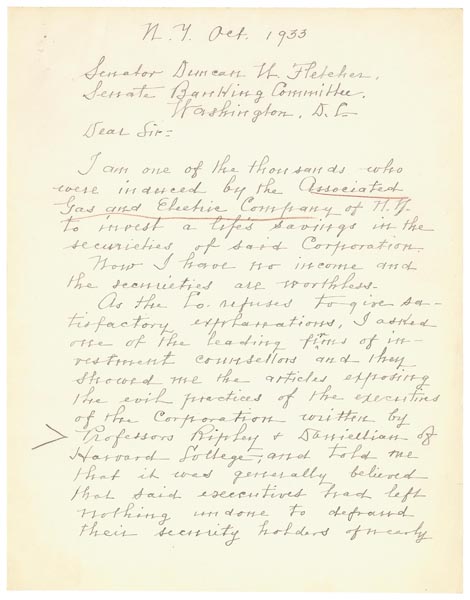 N.Y. Oct. 1933
Senator Duncan U. Fletcher,
Senate Banking Committee.
Washington, D.C.
Dear Sir:-
I am one of the thousands who
were induced by the Associated
Gas and Electric Company of N.Y.
to invest a life's savings in the
securieties of said Corporation.
Now I have no income and
the securieties are worthless.
As the Co. refuses to give sa-
tisfactory explanations, I asked
one of the leading firms of in-
vestment counsellors and they
showed me the articles exposing
the evil practices of the executives
of the Corporation written by
Professors Ripley & Daniellian of
Harvard College, and told me
that it was generally believed
that said executives had left
nothing undone to defraud
their security holders of nearly